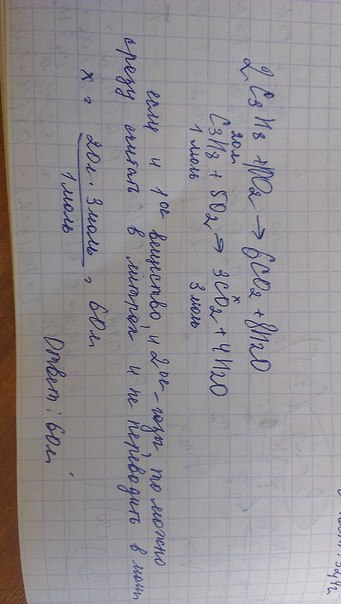 2C3H8 + 10O2 → 6CO2 + 8H2O
20л x
C3H8 + 5O2 → 3CO2 + 4H2O
1 моль 3 моль
если и 1ое вещество, и 2ое - газы, то можно
сразу считать в литрах и не переводить в моли
x = 20л · 3 моль = 60л
1 моль
Ответ: 60л.